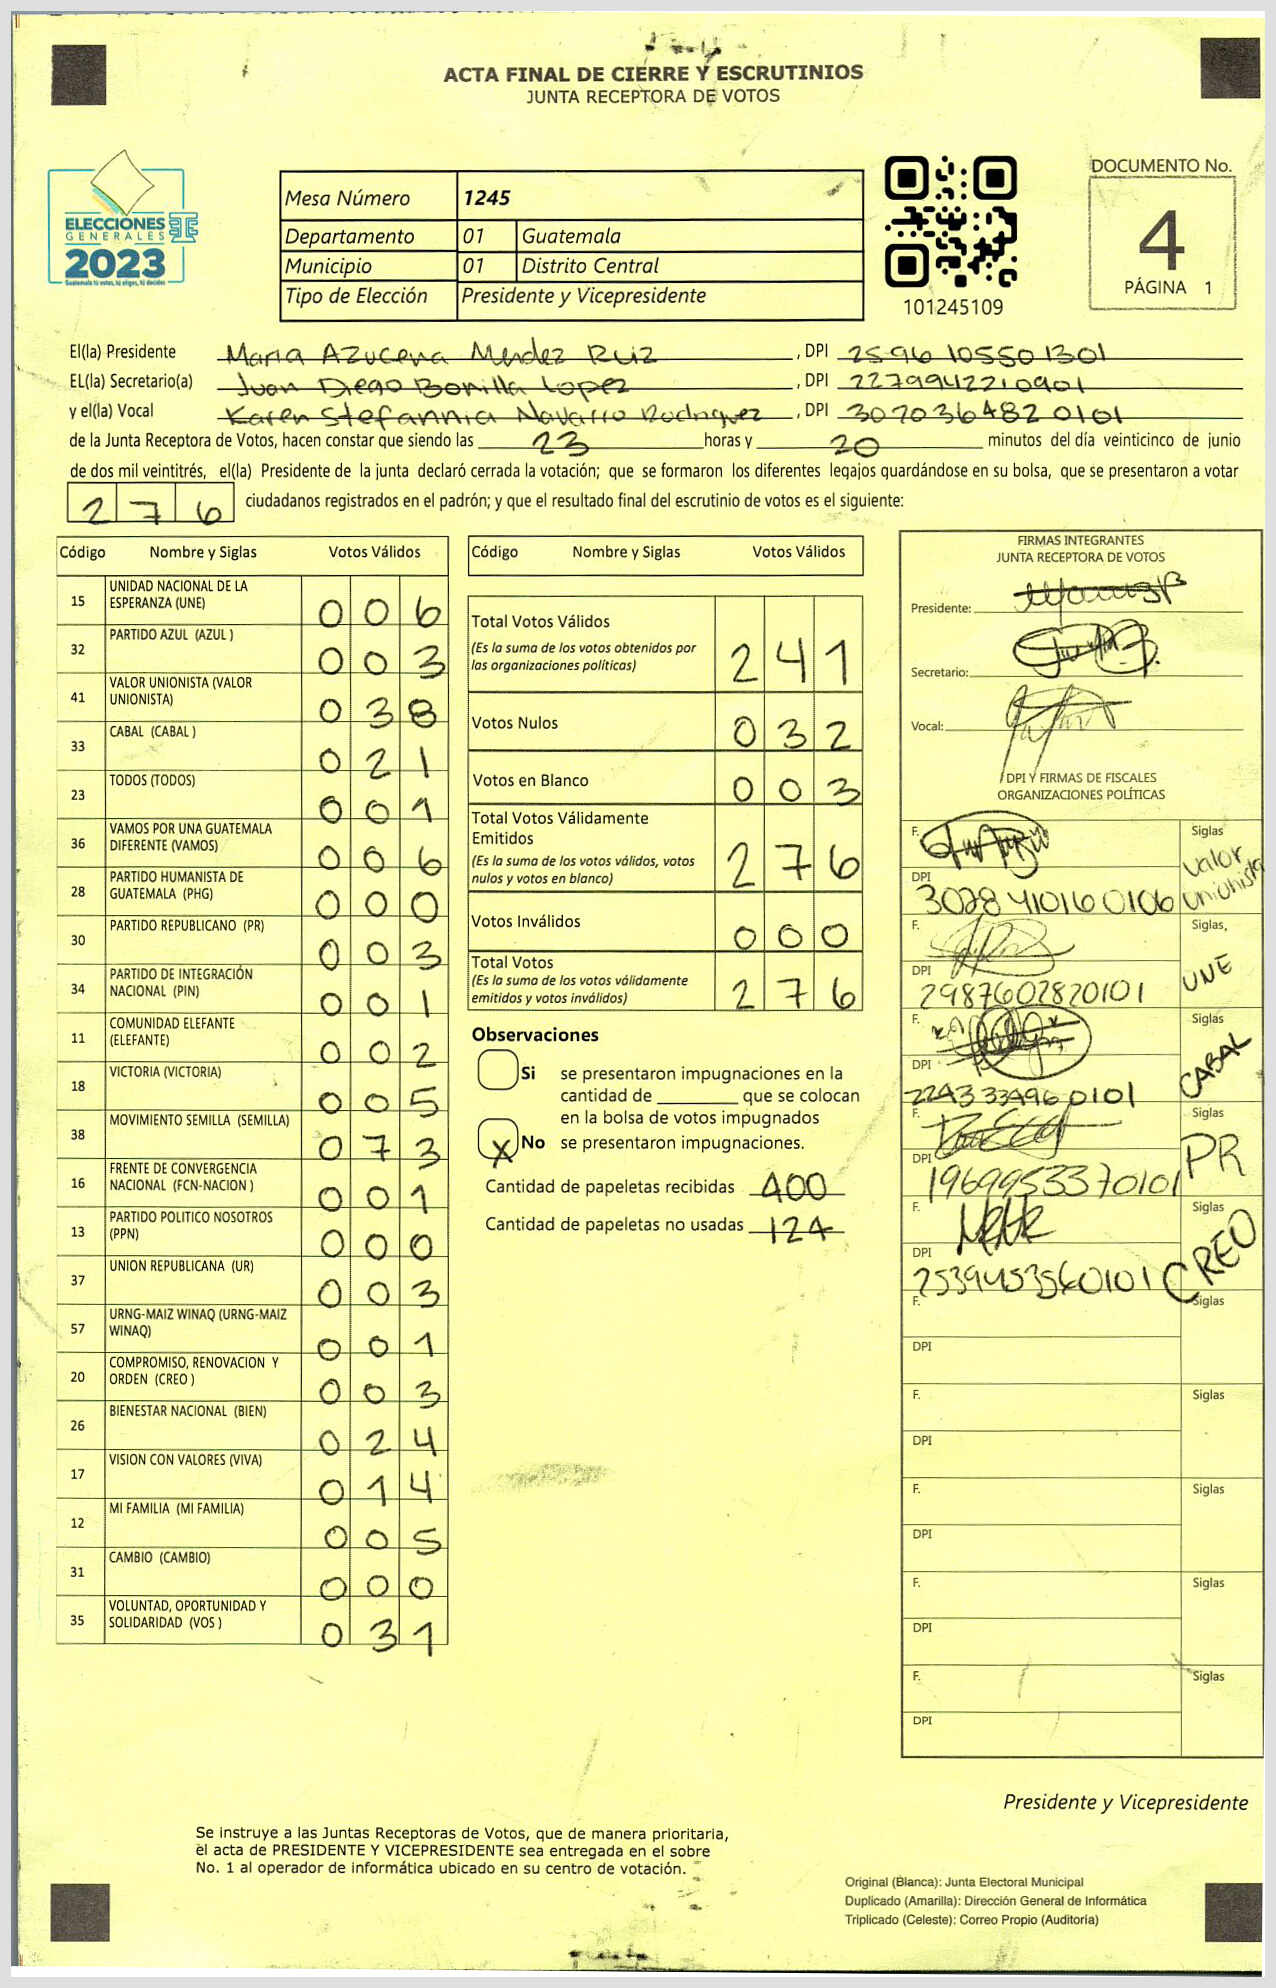 ACTA FINAL DE CIERRE Y ESCRUTINIOS
JUNTA RECEPTORA DE VOTOS
ELECCIONES
GENERALES
2023
Guatemala tú votas, tú eliges, tú decides
Mesa Número 1245
Departamento 01 Guatemala
Municipio 01 Distrito Central
Tipo de Elección Presidente y Vicepresidente
101245109
DOCUMENTO No.
4
PÁGINA 1
El(la) Presidente Maria Azucena Mendez Ruiz, DPI 2596105501301
EL(la) Secretario(a) Juan Diego Bonilla Lopez, DPI 2279942210901
y el(la) Vocal Karen Stefannia Navarro Rodriguez, DPI 3070364820101
de la Junta Receptora de Votos, hacen constar que siendo las 23 horas y 20 minutos del día veinticinco de junio
de dos mil veintitrés, el(la) Presidente de la junta declaró cerrada la votación; que se formaron los diferentes legajos quardándose en su bolsa, que se presentaron a votar
276 ciudadanos registrados en el padrón; y que el resultado final del escrutinio de votos es el siguiente:
Código Nombre y Siglas Votos Válidos
15 UNIDAD NACIONAL DE LA ESPERANZA (UNE) 006
32 PARTIDO AZUL (AZUL ) 003
41 VALOR UNIONISTA (VALOR UNIONISTA) 038
33 CABAL (CABAL ) 021
23 TODOS (TODOS) 001
36 VAMOS POR UNA GUATEMALA DIFERENTE (VAMOS) 006
28 PARTIDO HUMANISTA DE GUATEMALA (PHG) 000
30 PARTIDO REPUBLICANO (PR) 003
34 PARTIDO DE INTEGRACIÓN NACIONAL (PIN) 001
11 COMUNIDAD ELEFANTE (ELEFANTE) 002
18 VICTORIA (VICTORIA) 005
38 MOVIMIENTO SEMILLA (SEMILLA) 073
16 FRENTE DE CONVERGENCIA NACIONAL (FCN-NACION ) 001
13 PARTIDO POLITICO NOSOTROS (PPN) 000
37 UNION REPUBLICANA (UR) 003
57 URNG-MAIZ WINAQ (URNG-MAIZ WINAQ) 001
20 COMPROMISO, RENOVACION Y ORDEN (CREO ) 003
26 BIENESTAR NACIONAL (BIEN) 024
17 VISION CON VALORES (VIVA) 014
12 MI FAMILIA (MI FAMILIA) 005
31 CAMBIO (CAMBIO) 000
35 VOLUNTAD, OPORTUNIDAD Y SOLIDARIDAD (VOS ) 031
Código Nombre y Siglas Votos Válidos
Total Votos Válidos 241
(Es la suma de los votos obtenidos por
las organizaciones políticas)
Votos Nulos 032
Votos en Blanco 003
Total Votos Válidamente
Emitidos 276
(Es la suma de los votos válidos, votos
nulos y votos en blanco)
Votos Inválidos 000
Total Votos 276
(Es la suma de los votos válidamente
emitidos y votos inválidos)
Observaciones
Si se presentaron impugnaciones en la
cantidad de ________ que se colocan
en la bolsa de votos impugnados
X No se presentaron impugnaciones.
Cantidad de papeletas recibidas 400
Cantidad de papeletas no usadas 124
FIRMAS INTEGRANTES
JUNTA RECEPTORA DE VOTOS
Presidente:
Secretario:
Vocal:
DPI Y FIRMAS DE FISCALES
ORGANIZACIONES POLÍTICAS
F. Siglas Valor Unionista
DPI 3028410160106
F. Siglas, UNE
DPI 2987602820101
F. Siglas CABAL
DPI 2243334960101
F. Siglas PR
DPI 1969953370101
F. Siglas CREO
DPI 2539453560101
F. Siglas
DPI
F. Siglas
DPI
F. Siglas
DPI
F. Siglas
DPI
F. Siglas
DPI
Presidente y Vicepresidente
Se instruye a las Juntas Receptoras de Votos, que de manera prioritaria,
el acta de PRESIDENTE Y VICEPRESIDENTE sea entregada en el sobre
No. 1 al operador de informática ubicado en su centro de votación.
Original (Blanca): Junta Electoral Municipal
Duplicado (Amarilla): Dirección General de Informática
Triplicado (Celeste): Correo Propio (Auditoría)